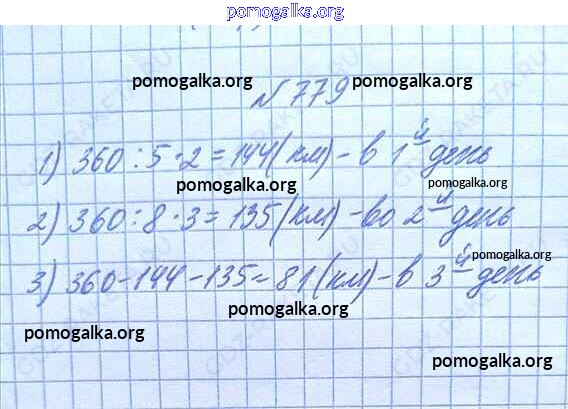 pomogalka.org
pomogalka.org pomogalka.org
№ 779
1) 360 : 5 · 2 = 144 (км) – в 1й день
pomogalka.org pomogalka.org
2) 360 : 8 · 3 = 135 (км) – во 2й день
pomogalka.org
3) 360 – 144 – 135 = 81 (км) – в 3й день
pomogalka.org
pomogalka.org
pomogalka.org